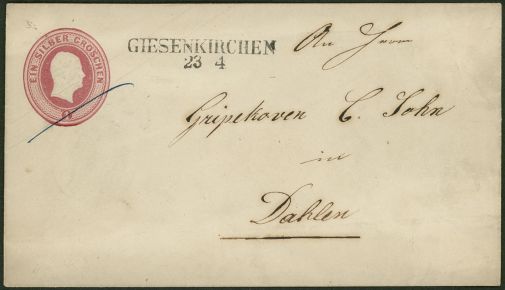 EIN SILBER GROSCHEN
GIESENKIRCHEN
23 4
An Herrn
Gripekoven C. Sohn
in
Dahlen